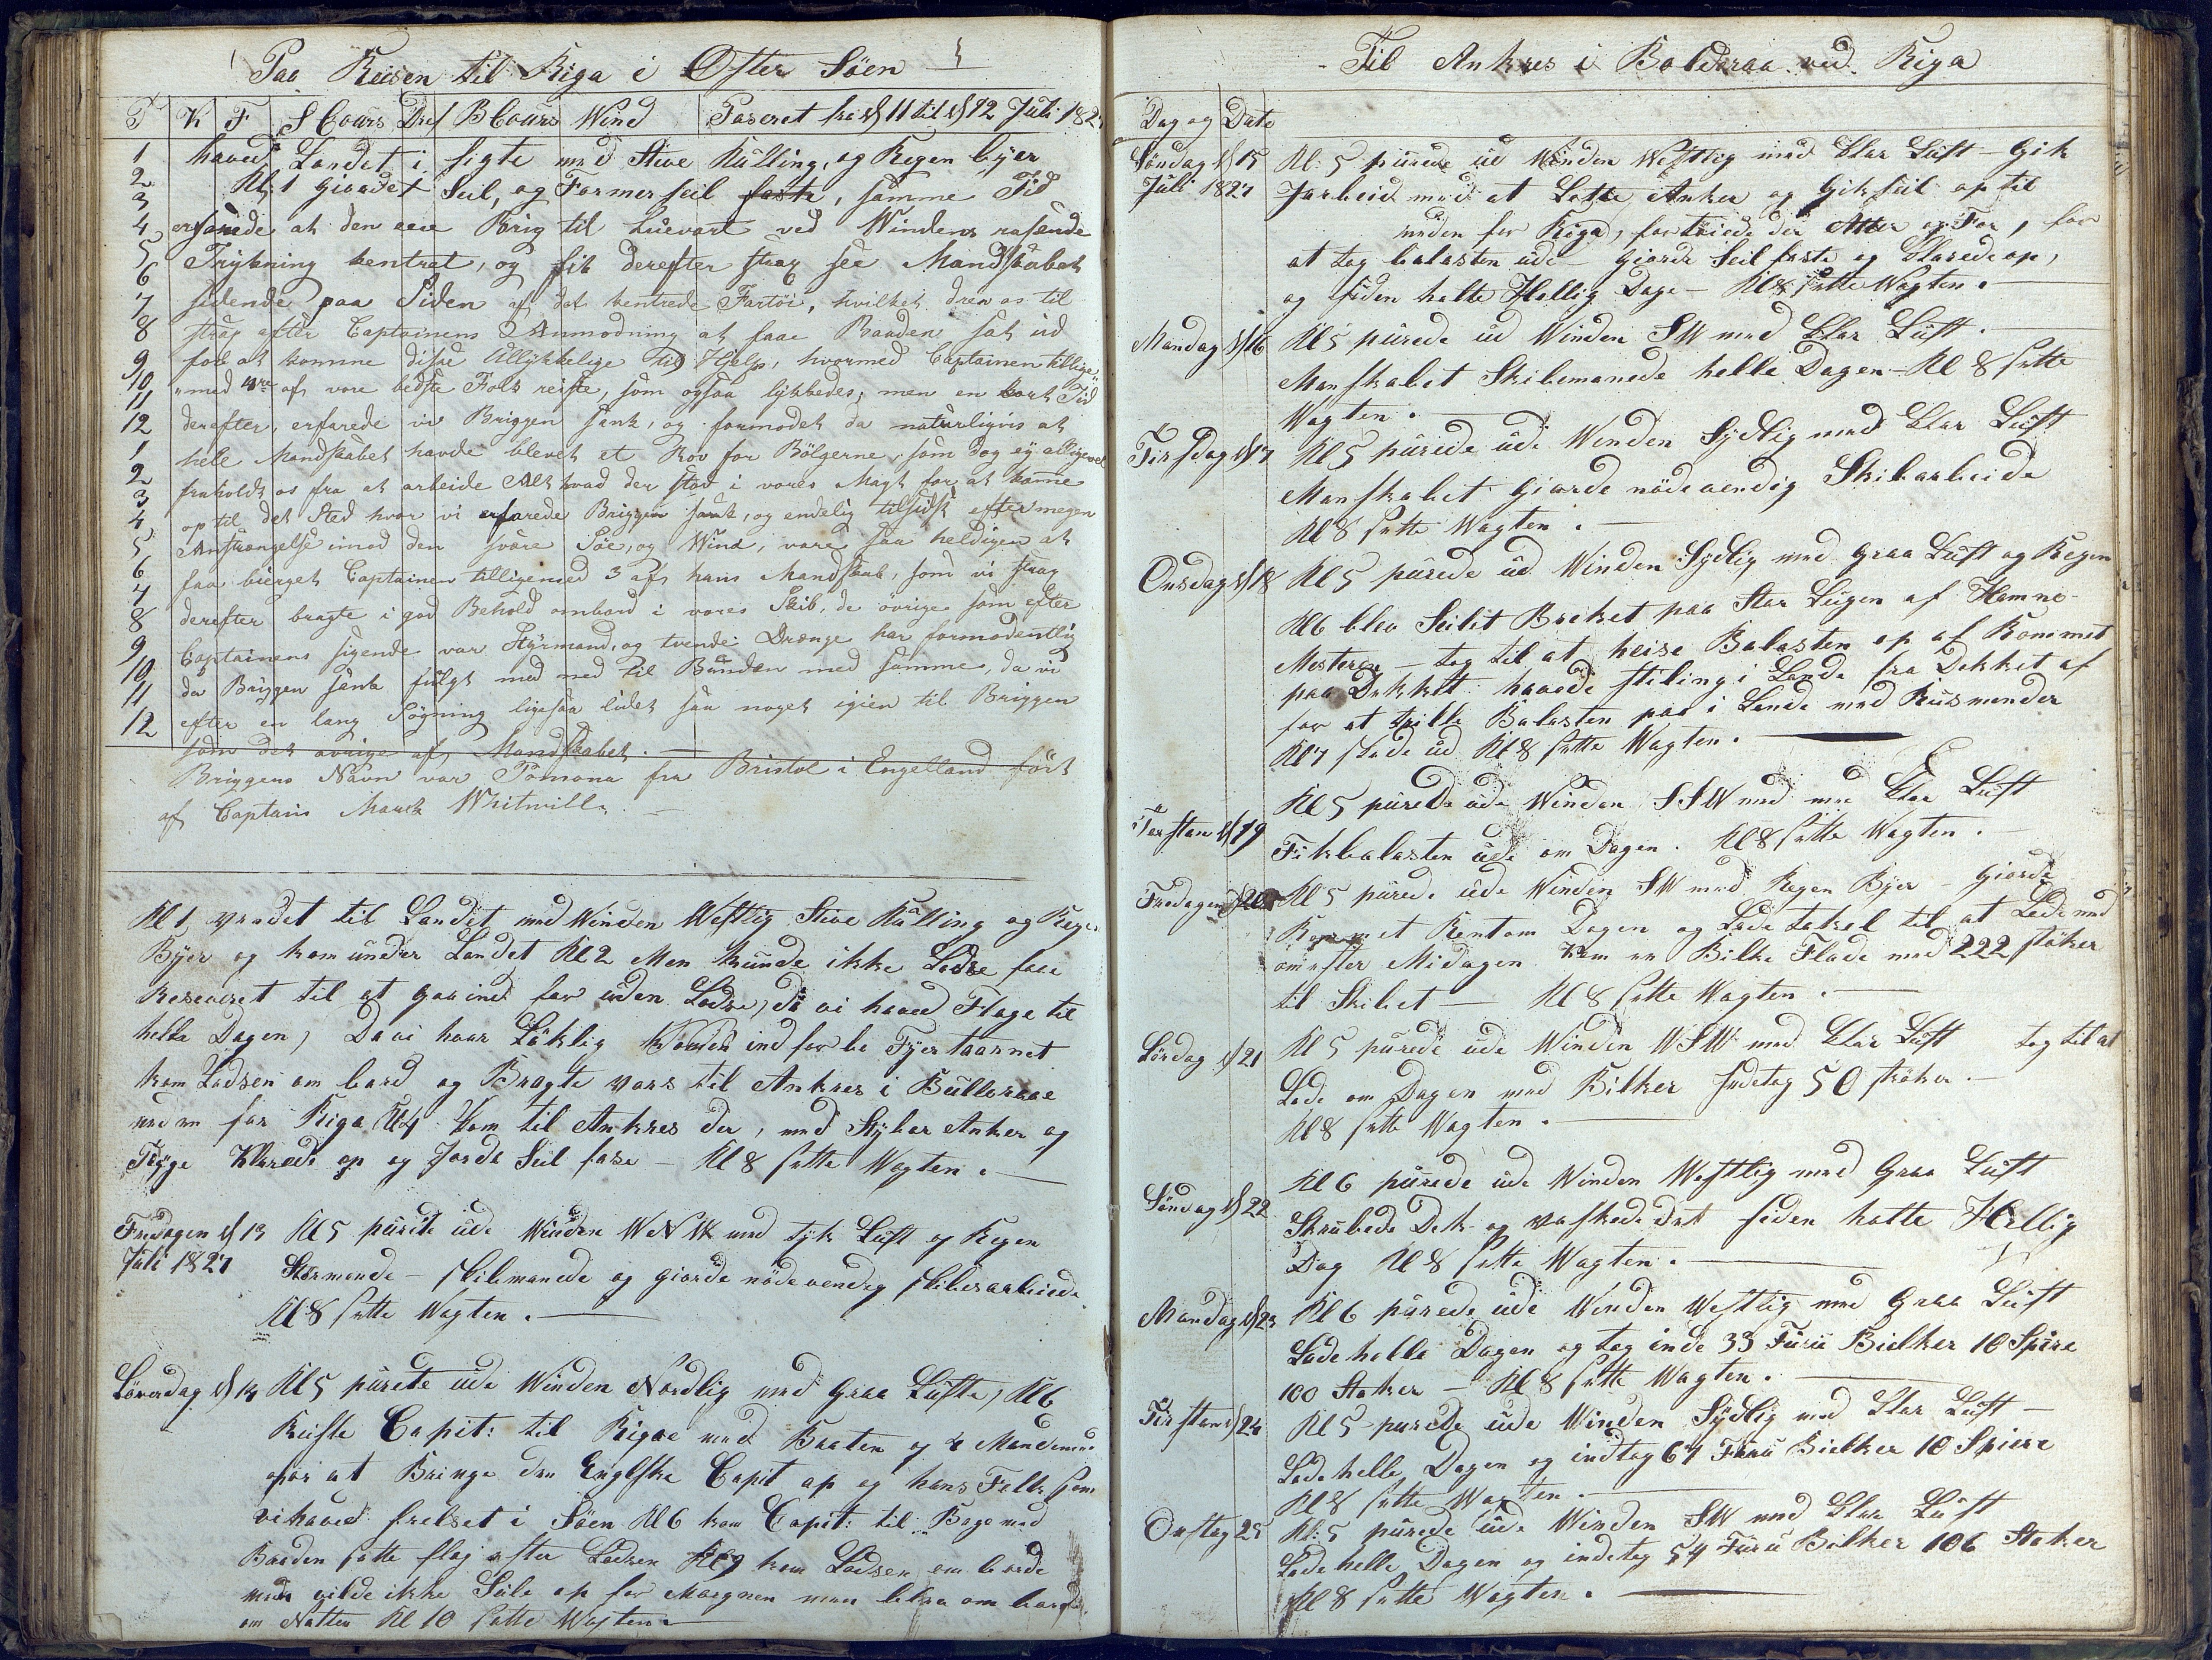 Paa Reisen til Riga i Öster Söen
T K F S Cours Drf B Cours Wind Paseret fra d 11 til d 12 Juli 182
1 haved Landet i sigte med Stive Kulling, og Regen byer
2 Kl: 1 giordet Seil, og Formerseil faste, samme Tid
3
4 erfarede at den ene Brig til Luevart ved Windens rasende
5 Trykning kentret, og fik derefter strax see Mandskabet
6
7 sidende paa Siden af det kentrede Fartöi, hvilket drev os til
8 strax efter Captainens Anmodning at faae Baaden sat ud
9 for at komme disse Ullykkelige til Hjelp, hvormed Captainen tillige
10 med 4re af vore bedste Folk reiste, som ogsaa lykkedes; men en kort Tid
11
12 derefter, erfarede vi Briggen sank, og formodet da naturligvis at
1 hele Mandskabet havde blevet et Rov for Bölgerne, som dog ey alligevel
2 fraholdt os fra at arbeide Alt hvad der stod i vores Magt for at komme
3 op til det Sted hvor vi erfarede Briggen sank, og endelig tilsidst efter megen
4
5 Anstrængelse imod den svære Söe, og Wind, vare saa heldigen at
6 faa bierget Captainen tilligemed 3 af hans Mandskab, som vi strax
7
8 derefter bragte i god Behold ombord i vores Skib, de övrige som efter
9 Captainens sigende var Styrmand, og tvende Drænge har formodentlig
10 da Briggen sank fulgt med ned til Bunden med samme, da vi
11 efter en lang Sögning ligesaa lidet saa noget igien til Briggen
12
som det övrige af Mandskabet.
Briggens Navn var Pomona fra Bristol i Engelland fört
af Captain Mark Whitwill.
Kl 1 vendet til Landet med Winden Westlig Stive Kulling og Regen
Byer og kom under Landet Kl 2 Men kunde ikke Lodse faae
Reserveret til at gaa ind for uden Lodse, da vi haved Flage til
helle Dagen, Da vi haar Löklig Kommen ind for bi Fyertaarnet
kom Lodsen om bord og Bragte vors til Ankres i Bulleraae
neden for Riga Kl 4 kom til Ankres der, med Stybor Anker og
Töyge Klarede op og Jorde Seil fase – Kl 8 satte Wagten.
Fredagen d 13 Kl 5 purete ude Winden WNW med tyk Luft og Regen
Juli 1827 Stormende – skibemanede og giorde nödevendig skibesarbeide
Kl 8 satte Wagten.
Löverdag d 14 Kl 5 purete ude Winden Nordlig med Graa Lufte, Kl 6
Reiste Capit: til Rigae med Baaten og 4 Mand
for at Bringe den Englske Capit op og hans Folk som
vi haved frelset i Söen Kl 6 kom Capit: til Bage med
Baaden satte flag efter Lodsen Kl 9 kom Lodsen om borde
men vilde ikke Seile op for Morgnen men blev om bord
om Natten Kl 10 satte Wagten
Til Ankres i Bolderaa ved Riga
Dag og Dato
Söndag d 15 Kl: 5 purede ud Winden Westlig med Klar Luft – Gik
Juli 1827 Jarbeid med at Lette Anker og Gik seil op til
neden for Riga, fortöiede der Atter og For, for
at tag balasten ude – giorde Seil faste og Klarede op,
og siden holte Hellig Dage – Kl 8 satte Wagten.
Mandag d 16 Kl 5 purede ud Winden SW med Klar Luft.
Manskabet Skibemanede helle Dagen – Kl 8 satte
Wagten.
Tirsdag d 17 Kl 5 purede ude Winden Sydlig med Klar Luft
Manskabet Giorde nödevendig Skibarbeide
Kl 8 satte Wagten.
Onsdag d 18 Kl 5 purede ud Winden Sydlig med Graa Luft og Regen
Kl 6 blev Seilet Breket paa Stor Lugen af Hamne-
Mesteren – tog til at heise Balasten op af Rommet
paa Dekket haaede stiling i Lande fra Dekket af
for at trille Balasten paa i Lande med Rusmender
Kl 7 skede ud Kl 8 satte Wagten.
Torstan d 19 Kl 5 purede ude Winden SSW med Klar Luft
Fik balasten ude om Dagen. Kl 8 satte Wagten.
Fredagen d 20 Kl 5 purede ude Winden SW med Regen Byer – giorde
Rommet Rent om Dagen og Lade takel til at Lade med
om efter Midagen Kom en Bilke Flade med 222 stöker
til Skibet – Kl 8 satte Wagten.
Lördag d 21 Kl 5 purede ude Winden WSW med Klar Luft tog til at
Lade om Dagen med Bilker indetog 50 stöker.
Kl 8 satte Wagten.
Söndag d 22 Kl 6 purede ude Winden Westlig med Graa Luft
Skrubede Dek og vaskede det siden holte Hellig
Dag Kl 8 satte Wagten.
Mandag d 23 Kl 6 purede ude Winden Westlig med Graa Luft
Lade helle Dagen og tog inde 33 Furu Bielker 10 Spire
100 Stoker – Kl 8 satte Wagten.
Tirstan d 24 Kl 5 purede ude Winden Sydlig med Klar Luft –
Lade helle Dagen og indtog 67 Furu Bielker 10 Spiere
Kl 8 satte Wagten.
Onstag 25 Kl: 5 purede ude Winden SW med Klar Luft
Lade helle Dagen og indetog 54 Furu Bilker 106 Stoker
Kl 8 satte Wagten.